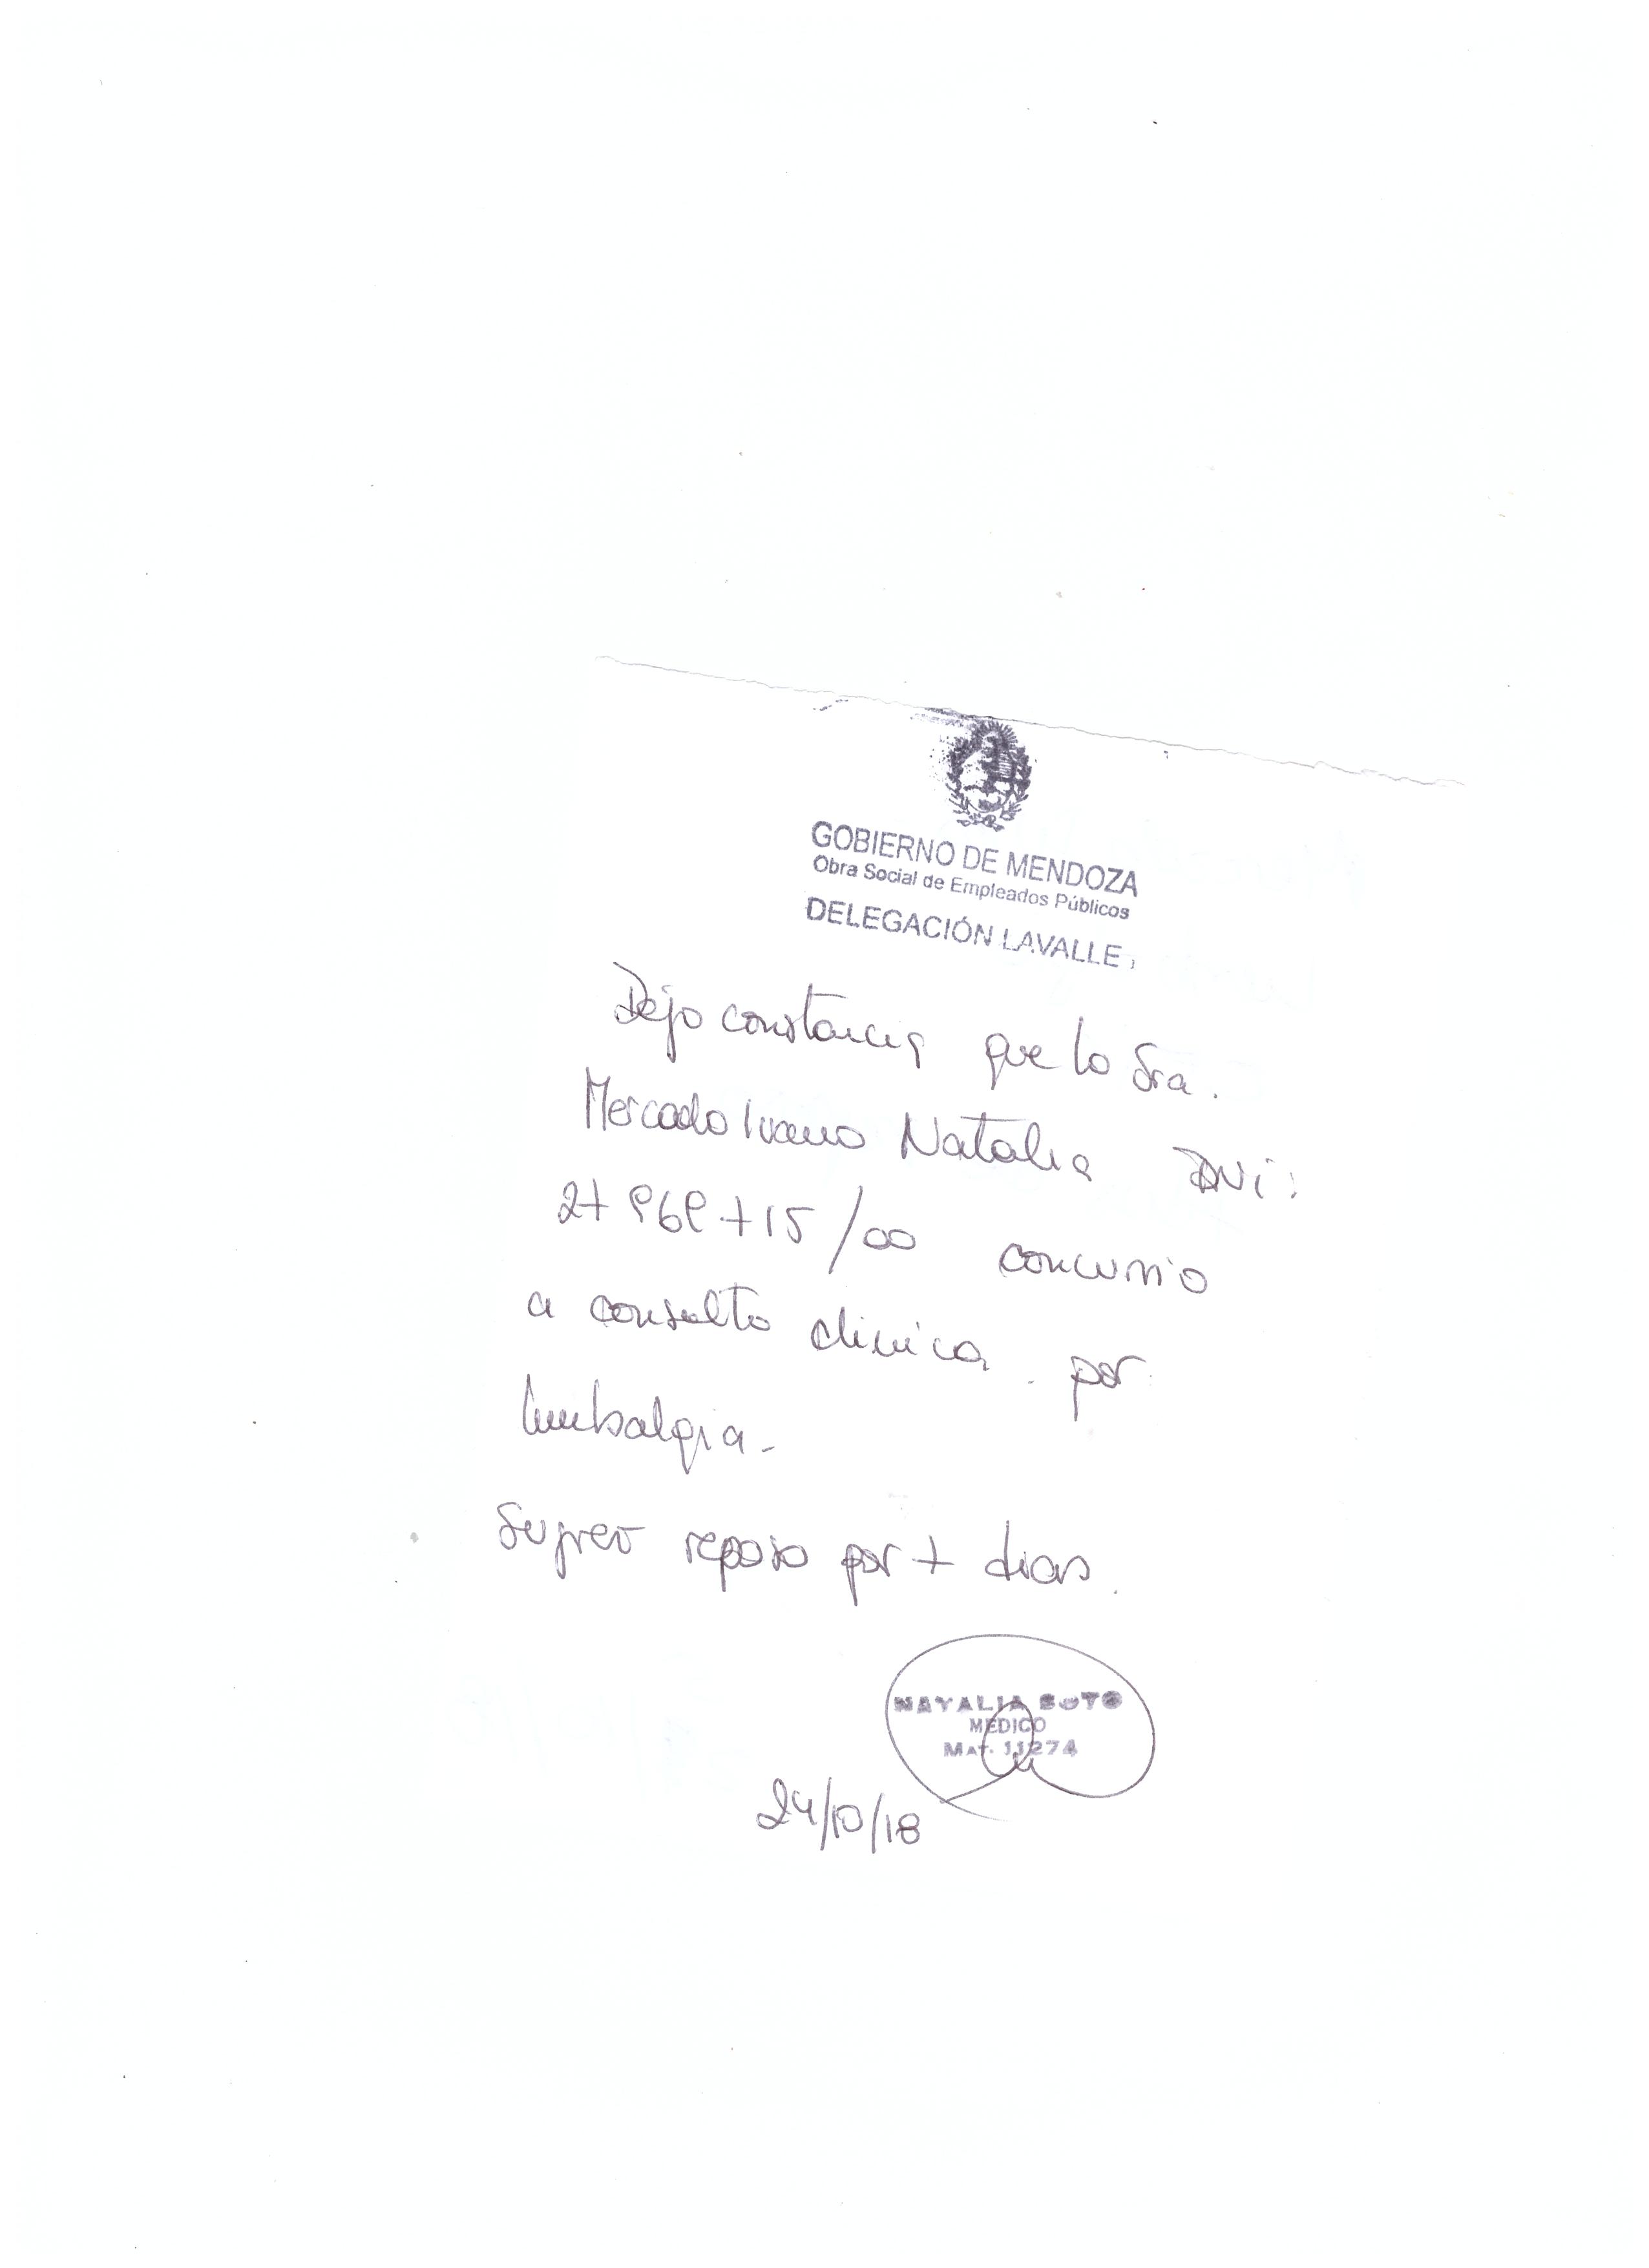 GOBIERNO DE MENDOZA
Obra Social de Empleados Públicos
DELEGACIÓN LAVALLE
Dejo constancia que la Sra.
Mercado Ivana Natalia DNI:
27969715/00 concurrio
a consulta clinica por
lumbalgia-
Sugiero reposo por 7 dias.
NATALIA SOTO
MEDICO
MAT. 11274
24/10/18